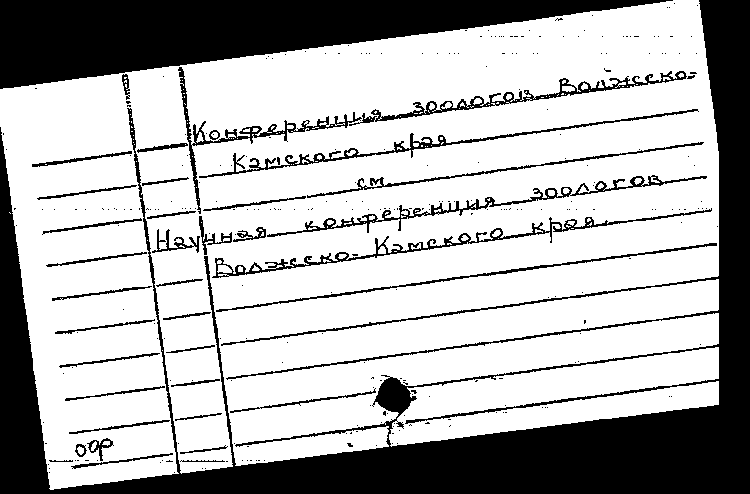 Конференция зоологов Волжско-
Камского края
см.
Научная конференция зоологов
Волжско-Камского края.
оор